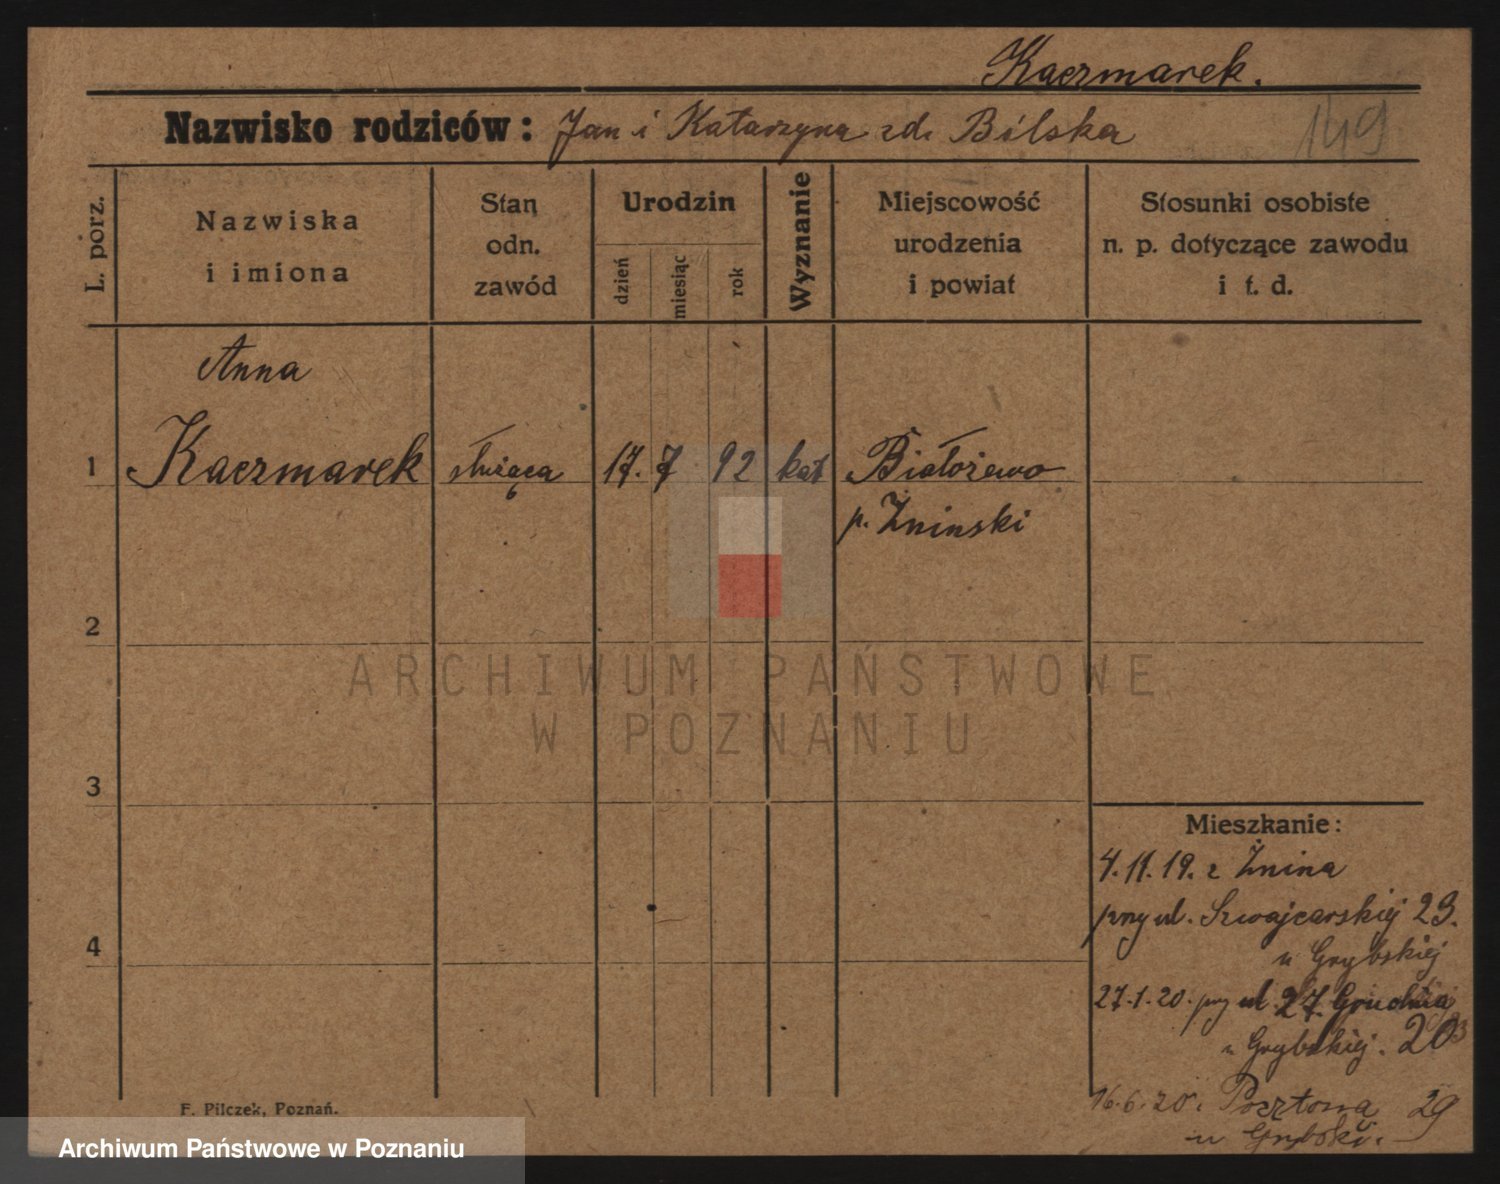 Kaczmarek.
Nazwisko rodziców: Jan i Katarzyna zd. Bilska
149
L. porz.
Nazwiska
i imiona
Stan
odn.
zawód
Urodzin
dzień
miesiąc
rok
Wyznanie
Miejscowość
urodzenia
i powiat
Stosunki osobiste
n. p. dotyczące zawodu
i t. d.
Anna
1 Kaczmarek służąca 17. 7 92 kat Białożewo
p. Żninski
2
ARCHIWUM PAŃSTWOWE
W POZNANIU
3
Mieszkanie:
4.11.19. z Żnina
przy ul. Szwajcarskiej 23.
u Grybskiej
4
27.1.20. przy ul 27. Grudnia
u Grybskiej. 20
16.6.20. Pocztowa 29
u Grybski.
F. Pilczek, Poznań.
Archiwum Państwowe w Poznaniu